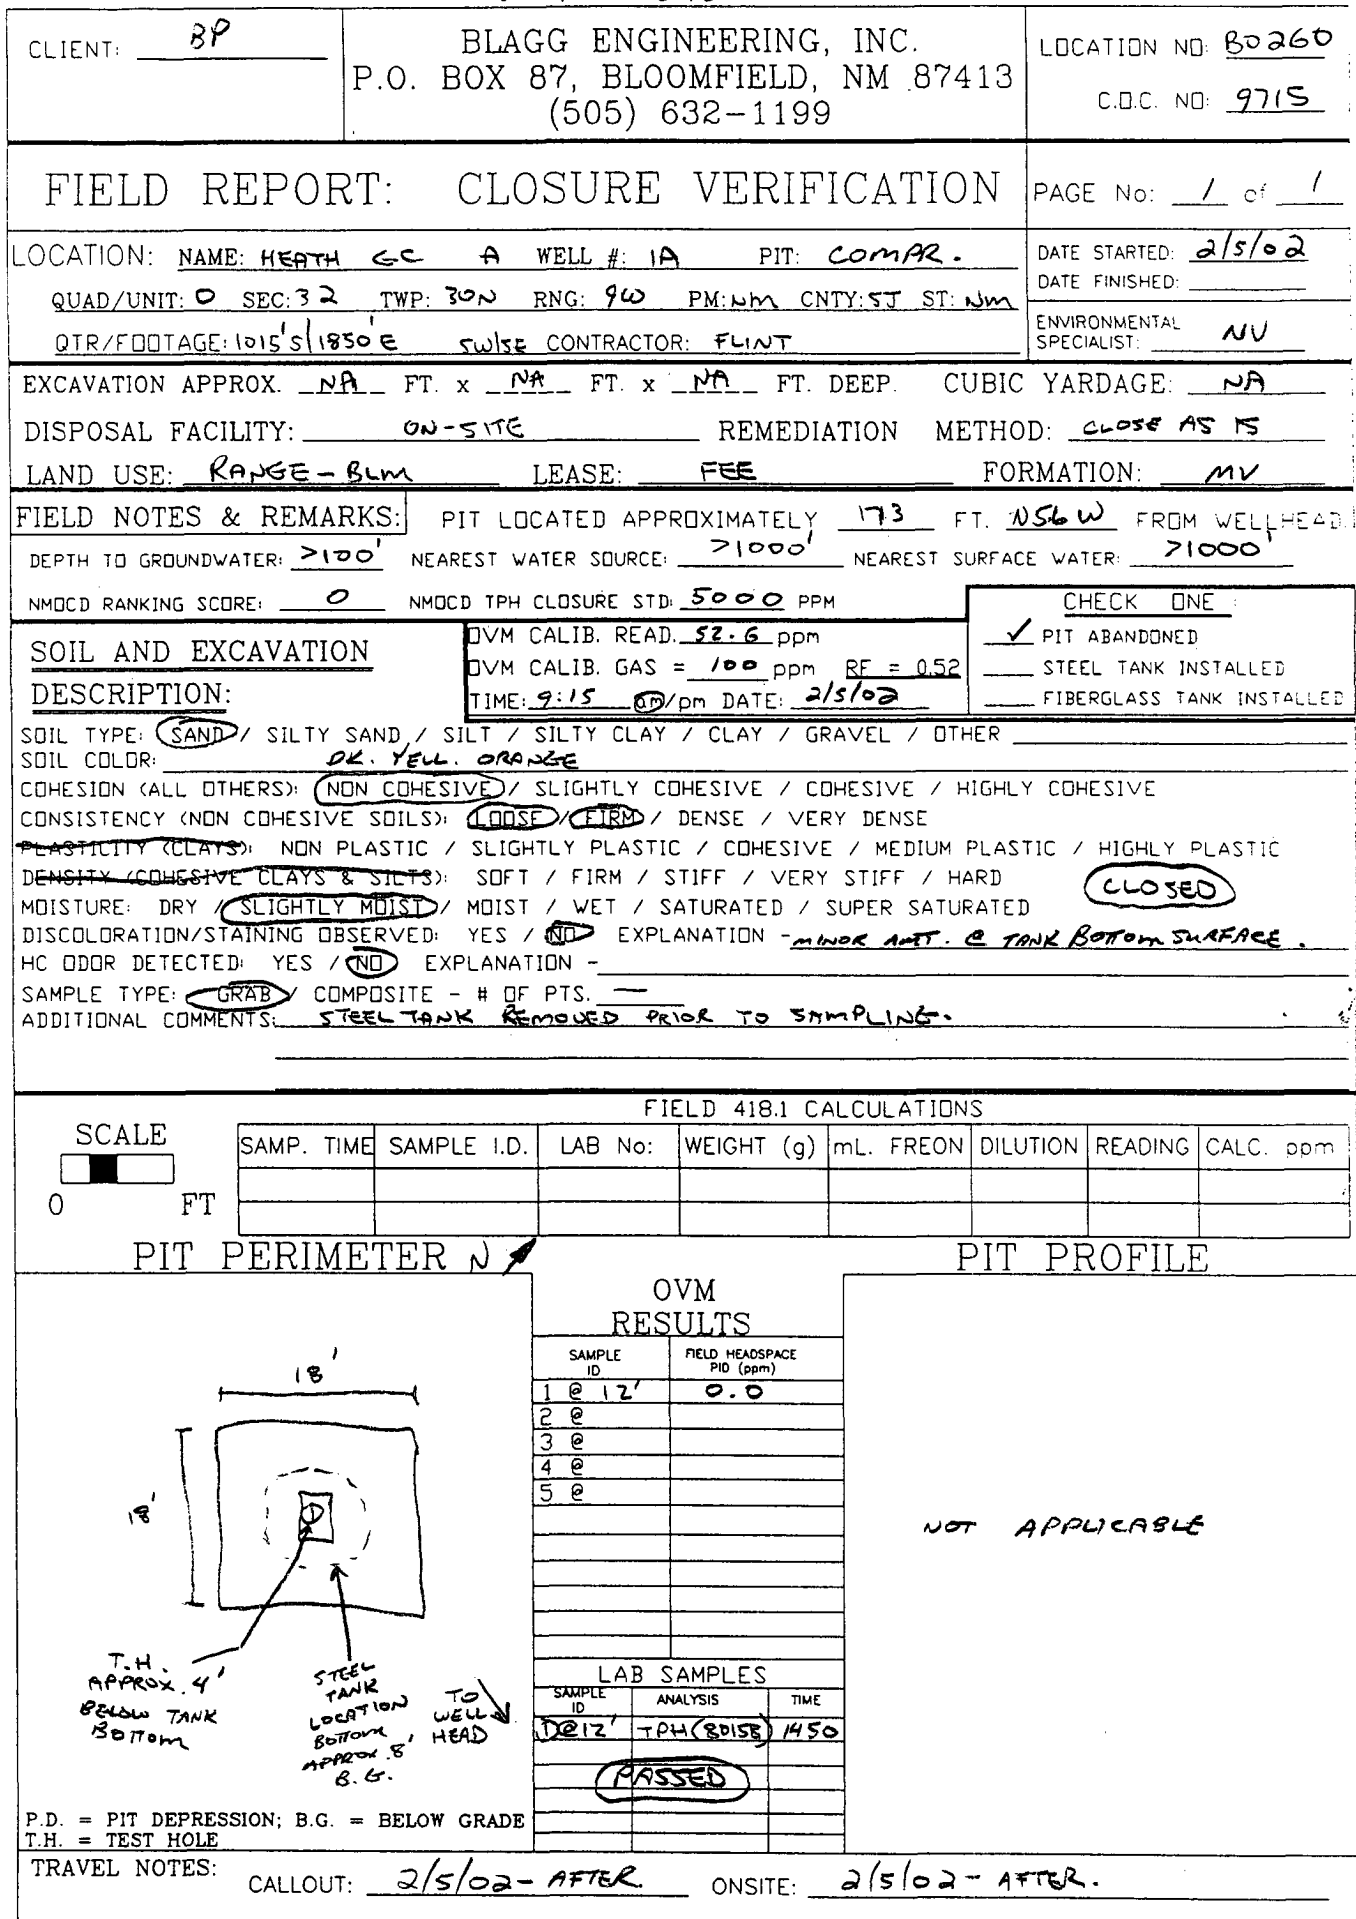 CLIENT: BP
BLAGG ENGINEERING, INC.
P.O. BOX 87, BLOOMFIELD, NM 87413
(505) 632-1199
LOCATION NO: B0260
C.O.C. NO: 9715
FIELD REPORT: CLOSURE VERIFICATION
PAGE No: 1 of 1
LOCATION: NAME: HEATH GC A WELL #: 1A PIT: COMPR.
QUAD/UNIT: O SEC: 32 TWP: 30N RNG: 9W PM: NM CNTY: SJ ST: NM
QTR/FOOTAGE: 1015'S/1850'E SW/SE CONTRACTOR: FLINT
DATE STARTED: 2/5/02
DATE FINISHED:
ENVIRONMENTAL
SPECIALIST: NV
EXCAVATION APPROX. NA FT. x NA FT. x NA FT. DEEP. CUBIC YARDAGE: NA
DISPOSAL FACILITY: ON-SITE REMEDIATION METHOD: CLOSE AS IS
LAND USE: RANGE - BLM LEASE: FEE FORMATION: MV
FIELD NOTES & REMARKS: PIT LOCATED APPROXIMATELY 173 FT. N56W FROM WELLHEAD.
DEPTH TO GROUNDWATER: >100' NEAREST WATER SOURCE: >1000' NEAREST SURFACE WATER: >1000'
NMOCD RANKING SCORE: 0 NMOCD TPH CLOSURE STD: 5000 PPM
CHECK ONE :
✓ PIT ABANDONED
STEEL TANK INSTALLED
FIBERGLASS TANK INSTALLED
SOIL AND EXCAVATION
DESCRIPTION:
OVM CALIB. READ. 52.6 ppm
OVM CALIB. GAS = 100 ppm RF = 0.52
TIME: 9:15 am/pm DATE: 2/5/02
SOIL TYPE: SAND / SILTY SAND / SILT / SILTY CLAY / CLAY / GRAVEL / OTHER
SOIL COLOR: DK. YELL. ORANGE
COHESION (ALL OTHERS): NON COHESIVE / SLIGHTLY COHESIVE / COHESIVE / HIGHLY COHESIVE
CONSISTENCY (NON COHESIVE SOILS): LOOSE / FIRM / DENSE / VERY DENSE
PLASTICITY (CLAYS): NON PLASTIC / SLIGHTLY PLASTIC / COHESIVE / MEDIUM PLASTIC / HIGHLY PLASTIC
DENSITY (COHESIVE CLAYS & SILTS): SOFT / FIRM / STIFF / VERY STIFF / HARD
CLOSED
MOISTURE: DRY / SLIGHTLY MOIST / MOIST / WET / SATURATED / SUPER SATURATED
DISCOLORATION/STAINING OBSERVED: YES / NO EXPLANATION - MINOR AMT. @ TANK BOTTOM SURFACE.
HC ODOR DETECTED: YES / NO EXPLANATION -
SAMPLE TYPE: GRAB / COMPOSITE - # OF PTS. —
ADDITIONAL COMMENTS: STEEL TANK REMOVED PRIOR TO SAMPLING.
FIELD 418.1 CALCULATIONS
SCALE
0 FT
SAMP. TIME SAMPLE I.D. LAB No: WEIGHT (g) mL. FREON DILUTION READING CALC. ppm
PIT PERIMETER N
PIT PROFILE
18'
18'
1
T.H.
APPROX. 4'
BELOW TANK
BOTTOM
STEEL
TANK
LOCATION
BOTTOM
APPROX. 8'
B.G.
TO
WELL
HEAD
P.D. = PIT DEPRESSION; B.G. = BELOW GRADE
T.H. = TEST HOLE
OVM
RESULTS
SAMPLE ID FIELD HEADSPACE PID (ppm)
1 @ 12' 0.0
2 @
3 @
4 @
5 @
LAB SAMPLES
SAMPLE ID ANALYSIS TIME
1@12' TPH (8015B) 1450
PASSED
NOT APPLICABLE
TRAVEL NOTES: CALLOUT: 2/5/02 - AFTER. ONSITE: 2/5/02 - AFTER.